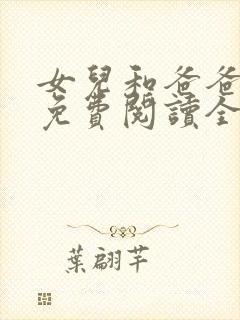 女兒和爸爸
免費閱讀全
葉翩芊